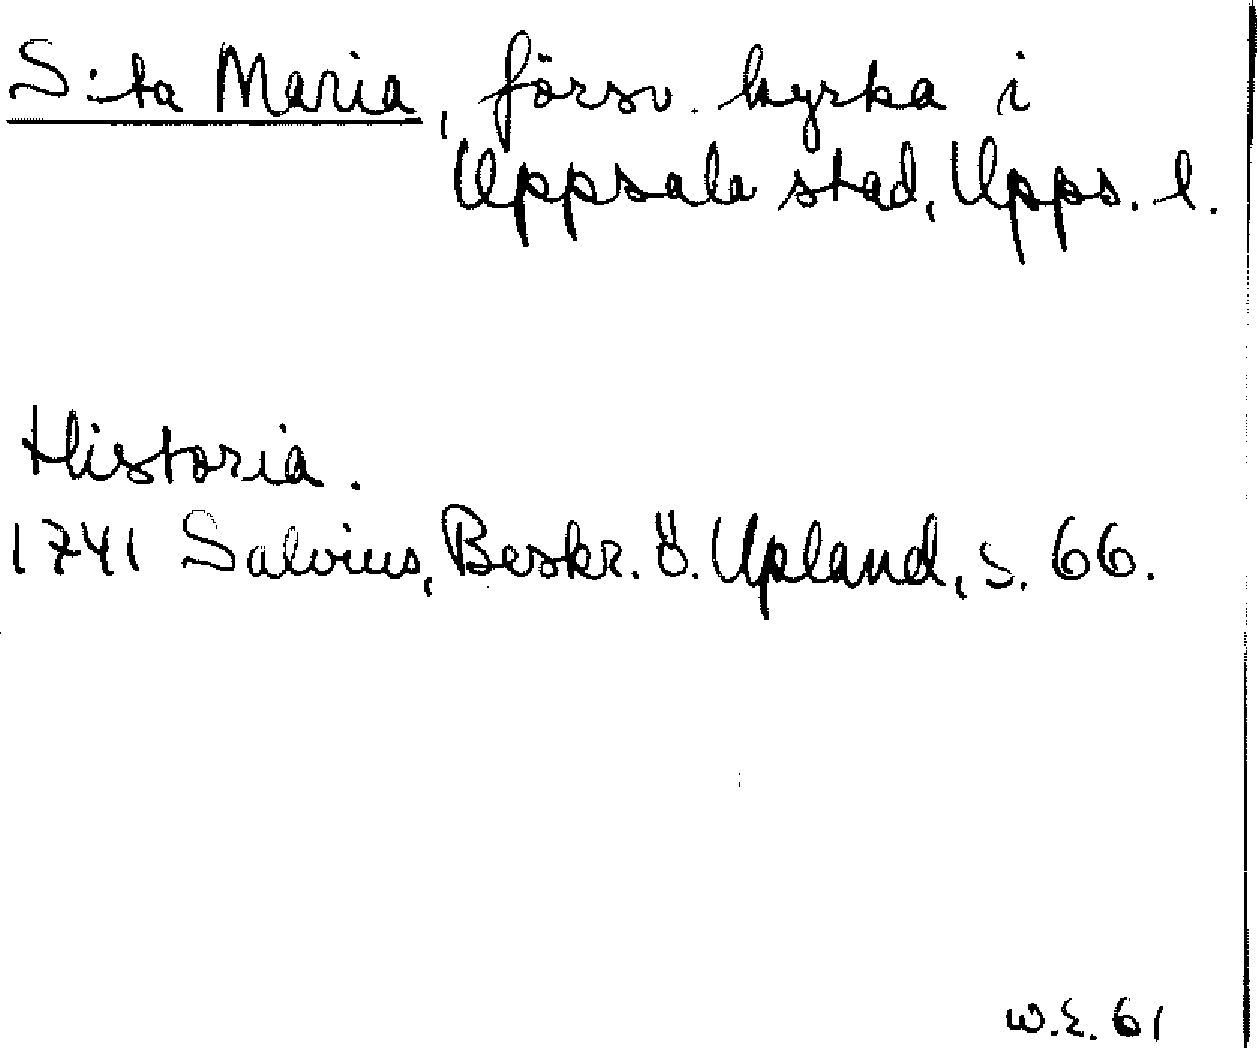 S:ta Maria, försv. kyrka i
Uppsala stad, Upps. l.
Historia.
1741 Salvius, Beskr. ö. Upland, s. 66.
W.E. 61